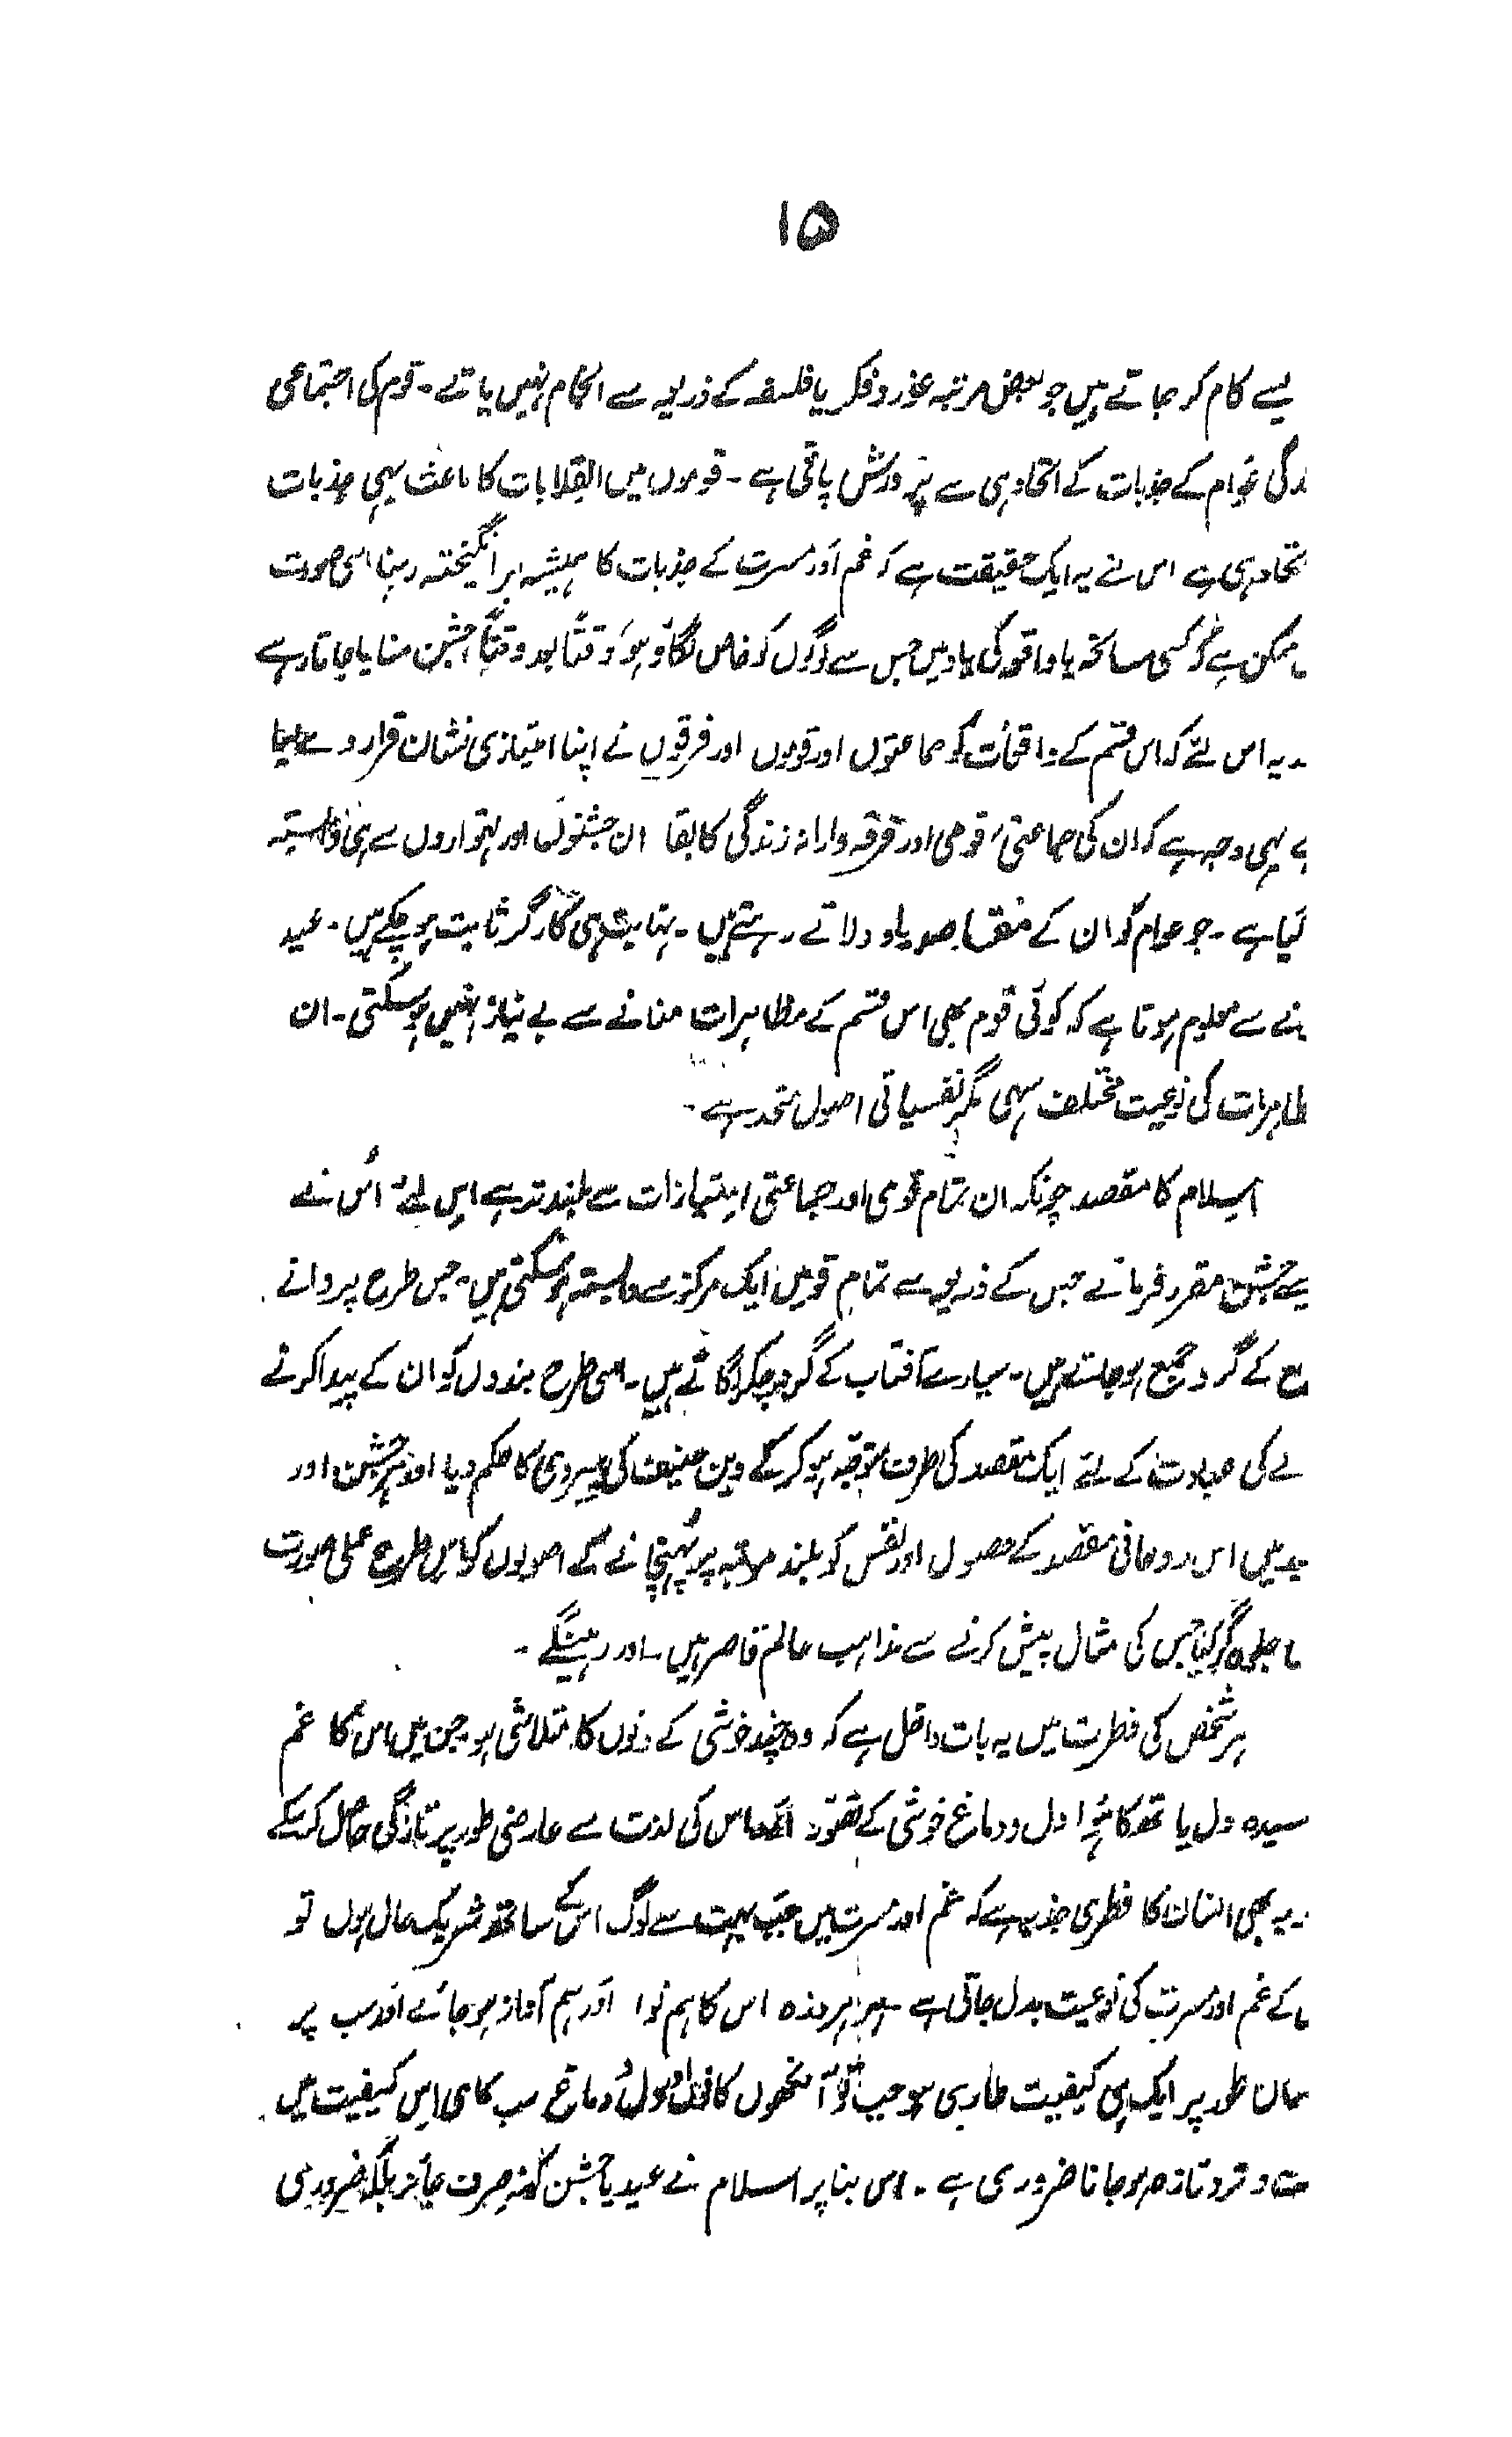 ۱۵
یسے کام کر جاتے ہیں جو بعض مرتبہ غور و فکر یا فلسفہ کے ذریعہ سے انجام نہیں پاتے ۔ قوم کی اجتماعی
دگی عوام کے جذبات کے اتحاد ہی سے پرورش پاتی ہے ۔ قوموں میں انقلابات کا باعث یہی جذبات
تحاد ہی ہے اس لئے یہ ایک حقیقت ہے کہ غم اور مسرت کے جذبات کا ہمیشہ برانگیختہ رہنا اسی صورت
ں ممکن ہے کہ کسی سانحہ یا واقعہ کی یاد میں جس سے لوگوں کو خاص لگاؤ ہو وقتاً بعد وقتاً جشن منایا جاتا رہے
یہ اس لئے کہ اس قسم کے واقعات کو جماعتوں اور قوموں اور فرقوں نے اپنا امتیازی نشان قرار دے لیا
ہے یہی وجہ ہے کہ ان کی جماعتی، قومی اور فرقہ وارانہ زندگی کا بقا ان جشنوں اور تہواروں سے ہی وابستہ
گیا ہے ۔ جو عوام کو ان کے مقاصد یاد دلاتے رہتے ہیں ۔ نہایت ہی کارگر ثابت ہو چکے ہیں ۔ غید
ینے سے معلوم ہوتا ہے کہ کوئی قوم بھی اس قسم کے مظاہرات منانے سے بے نیاز نہیں ہو سکتی ۔ ان
ظاہرات کی نوعیت مختلف سہی مگر نفسیاتی اصول متحد ہے ۔
اسلام کا مقصد چونکہ ان تمام قومی اور جماعتی امتیازات سے بلند تر ہے اس لئے اُس نے
یسے جشن مقرر فرمائے جس کے ذریعہ سے تمام قومیں ایک مرکز سے وابستہ ہو سکتی ہیں ۔ جس طرح پروانے
ع کے گرد جمع ہو جاتے ہیں ۔ سیارے آفتاب کے گرد چکر لگاتے ہیں ۔ اسی طرح بندوں کو ان کے پیدا کرنے
لے کی عبادت کے لئے ایک مقصد کی طرف متوجہ ہو کر کے دین حنیف کی پیروی کا حکم دیا اور ہر جشن اور
ید میں اس روحانی مقصد کے حصول اور نفس کو بلند مرتبہ پر پہنچانے کے اصولوں کو اس طرح عملی صورت
ں جلوہ گر کیا جس کی مثال پیش کرنے سے مذاہب عالم قاصر ہیں ۔ اور رہینگے ۔
ہر شخص کی فطرت میں یہ بات داخل ہے کہ وہ چند خوشی کے دنوں کا متلاشی ہو جن میں اس کا غم
سیدہ دل یا تھکا ہوا دل و دماغ خوشی کے تصور اور اس کی لذت سے عارضی طور پر تازگی حاصل کر سکے
ر یہ بھی انسان کا فطری جذبہ ہے کہ غم اور مسرت میں جب بہت سے لوگ اس کے ساتھ شریک حال ہوں تو
ں کے غم اور مسرت کی نوعیت بدل جاتی ہے ۔ ہر ہر ذرہ اس کا ہم نوا اور ہم آواز ہو جائے اور سب پر
ساں طور پر ایک ہی کیفیت طاری ہو جب تو آنکھوں کا دل و دماغ سب کا ہی اس کیفیت میں
و تر و تازہ ہو جانا ضروری ہے ۔ اس بنا پر اسلام نے عید یا جشن کو نہ صرف جائز بلکہ ضروری